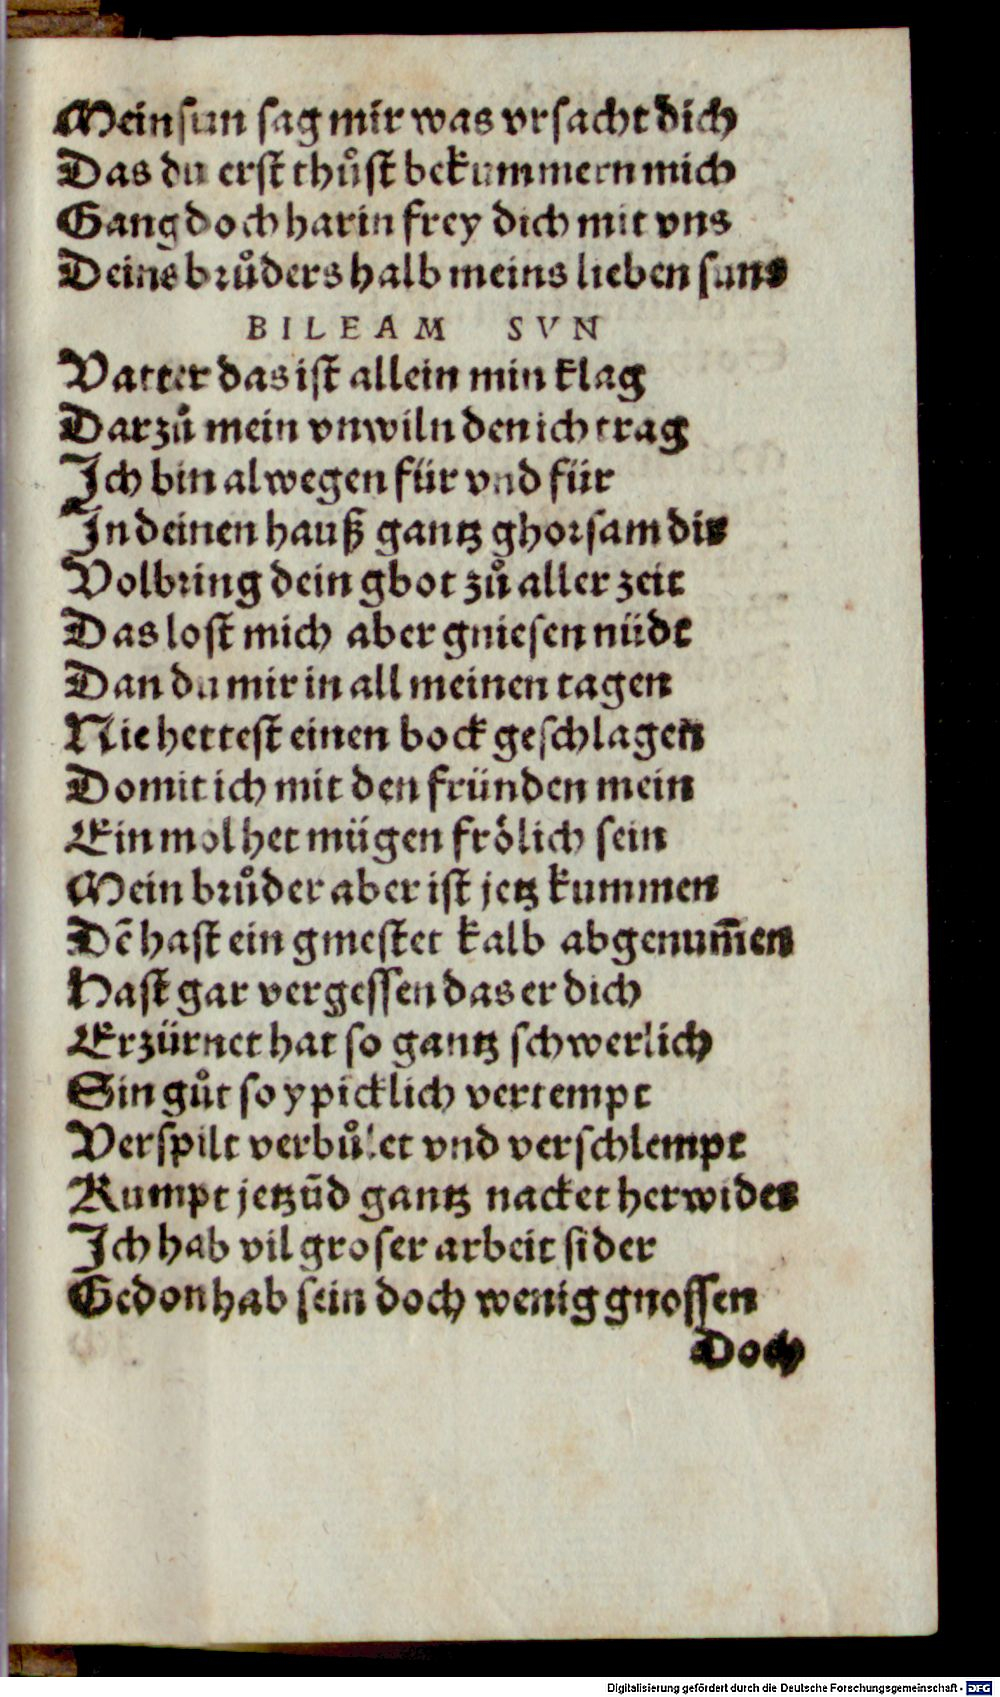 Mein sun sag mir was vrsacht dich
Das du erst thůst bekummern mich
Gang doch harin frey dich mit vns
Deins brůders halb meins lieben suns
BILEAM SVN
Vatter das ist allein min klag
Darzů mein vnwiln den ich trag
Ich bin alwegen für vnd für
In deinen hauß gantz ghorsam dir
Volbring dein gbot zů aller zeit
Das lost mich aber gniesen nüdt
Dan du mir in all meinen tagen
Nie hettest einen bock geschlagen
Domit ich mit den fründen mein
Ein mol het mügen frölich sein
Mein brůder aber ist jetz kummen
Dē hast ein gmestet kalb abgenum̄en
Hast gar vergessen das er dich
Erzürnet hat so gantz schwerlich
Sin gůt so ypicklich vertempt
Verspilt verbůlet vnd verschlempt
Kumpt jetzūd gantz nacket herwider
Ich hab vil groser arbeit sider
Gedon hab sein doch wenig gnossen
Doch
Digitalisierung gefördert durch die Deutsche Forschungsgemeinschaft - DFG